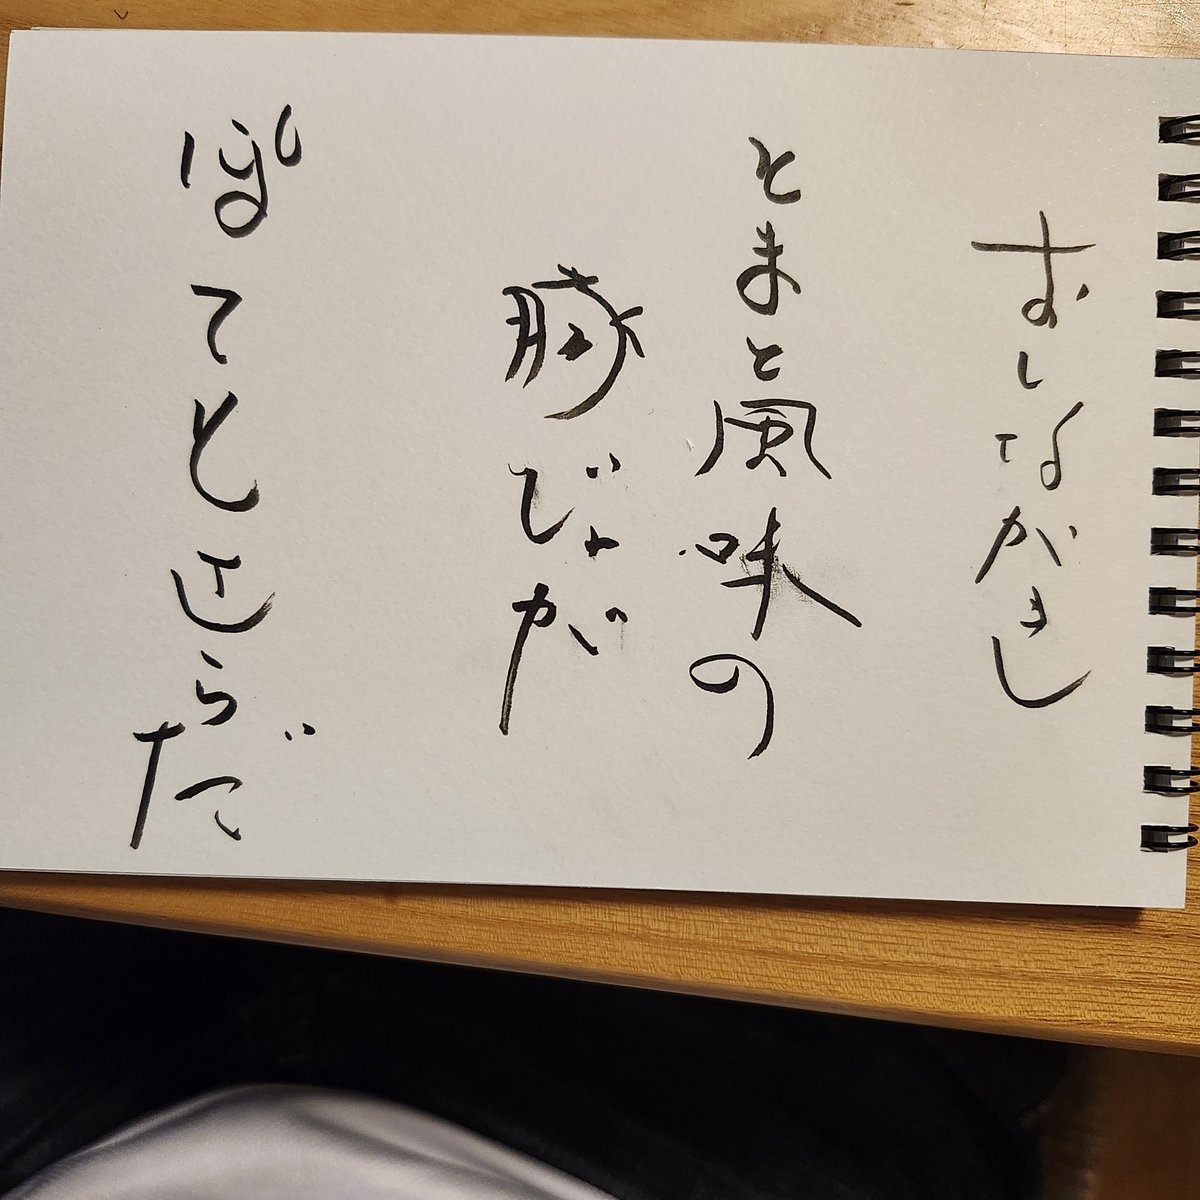 おしながきし
とまと風味の
豚じゃが
ぽてとさらだ